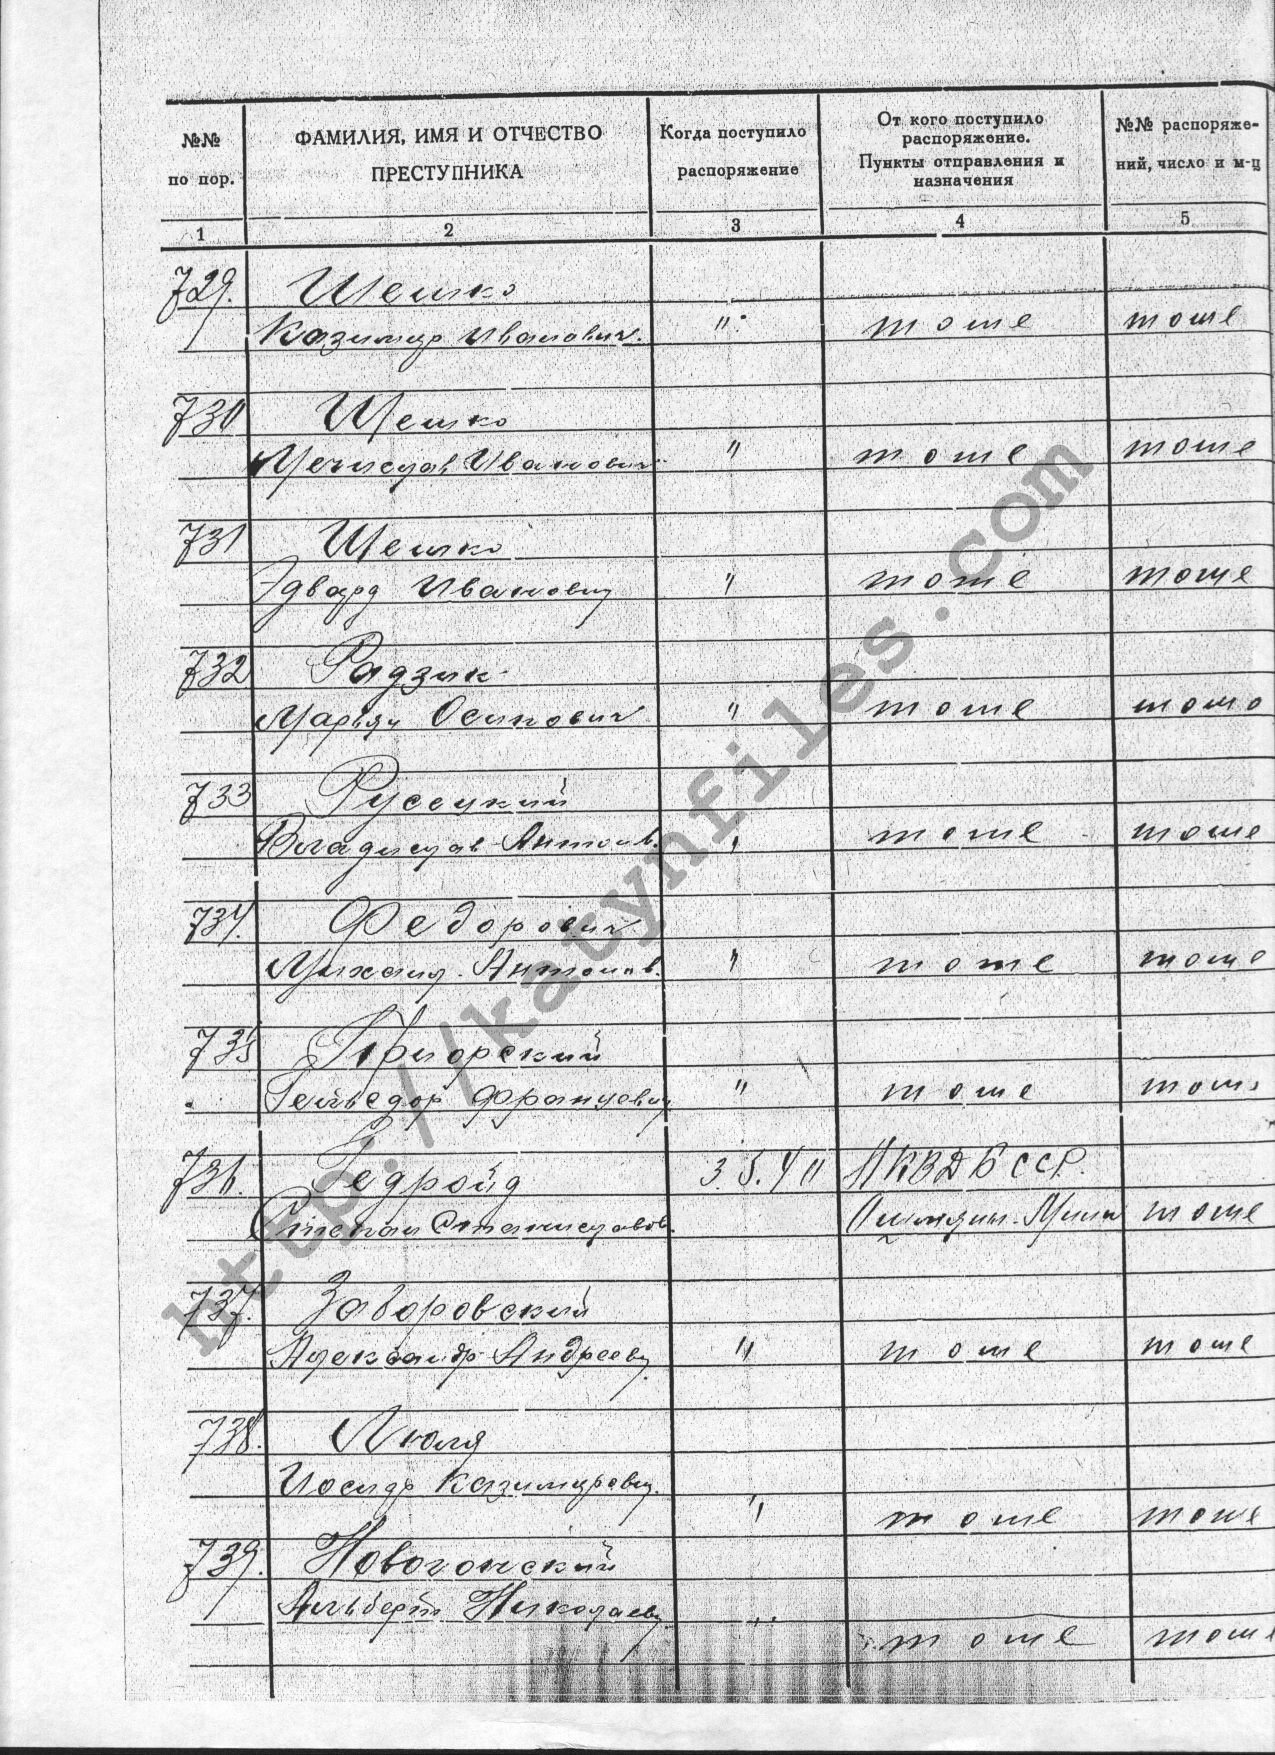 №№ по пор.
ФАМИЛИЯ, ИМЯ И ОТЧЕСТВО ПРЕСТУПНИКА
Когда поступило распоряжение
От кого поступило распоряжение. Пункты отправления и назначения
№№ распоряже-ний, число и м-ц
1 2 3 4 5
729. Шешко
Казимир Иванович. " тоже тоже
730 Шешко
Мечислав Иванович " тоже тоже
731 Шешко
Эдвард Иванович " тоже тоже
732 Радзик
Марьян Осипович " тоже тоже
733 Руссецкий
Владислав Антонов. " тоже тоже
734. Федорович
Михаил Антонов. " тоже тоже
735
Францевич " тоже тоже
736. Гедройд 3.5.40 НКВД БССР.
Степан Станиславов. Ошмяны-Минск тоже
737. Заборовский
Александр Андреев " тоже тоже
738. Люля
Иосиф Казимирович. " тоже тоже
739. Новогонский
Альберт Николаев " тоже тоже
http://katynfiles.com